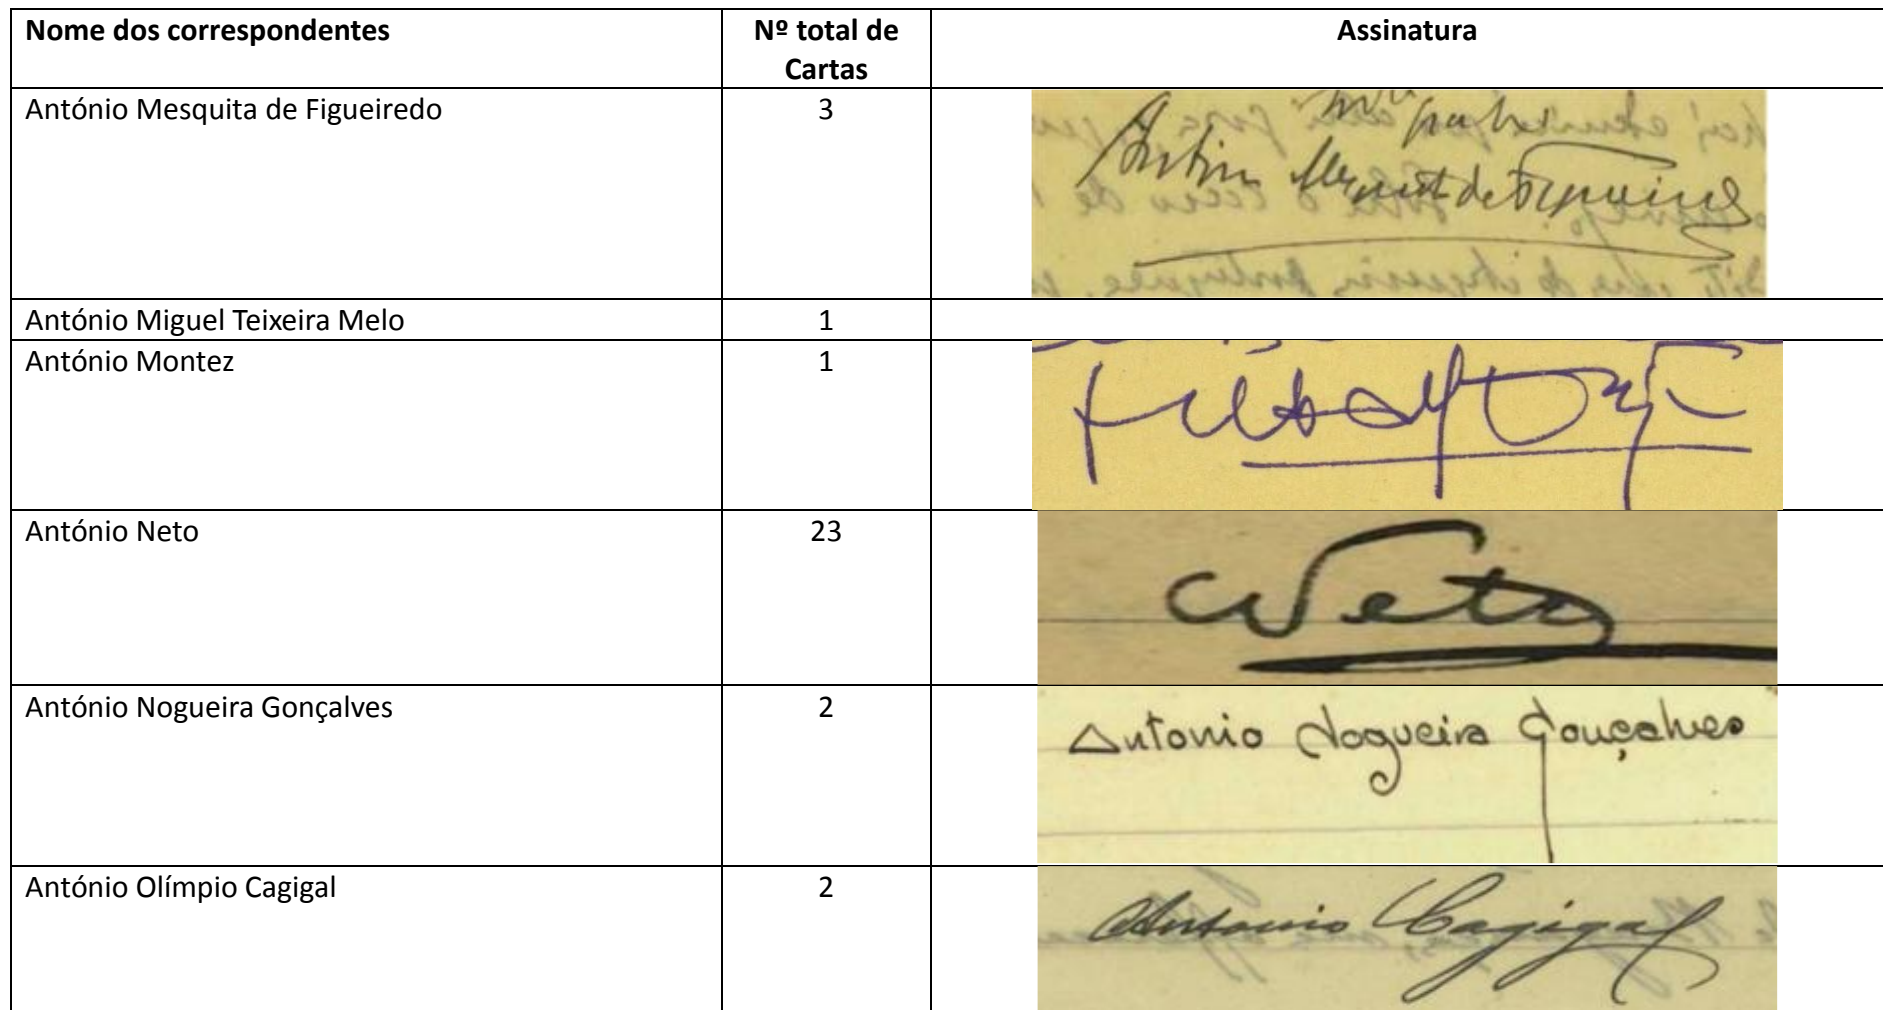 Nome dos correspondentes Nº total de Cartas Assinatura
António Mesquita de Figueiredo 3
Antonio Mesquita de Figueiredo
António Miguel Teixeira Melo 1
António Montez 1
António Neto 23
Neto
António Nogueira Gonçalves 2
Antonio Nogueira Gonçalves
António Olímpio Cagigal 2
Antonio Cagigal